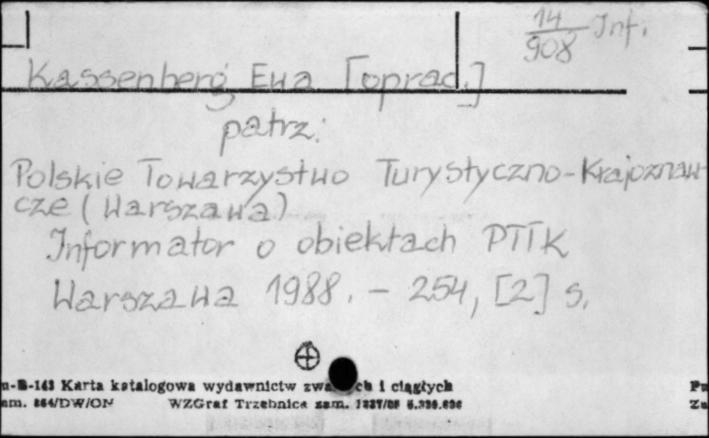 14 Inf.
908
Kassenberg, Ewa [oprac.]
patrz:
Polskie Towarzystwo Turystyczno-Krajoznaw-
cze (Warszawa)
Informator o obiektach PTTK
Warszawa 1988. - 254, [2] s.
u-B-143 Karta katalogowa wydawnictw i ciągłych
am. 864/DW/ON WZGraf Trzebnica zam.